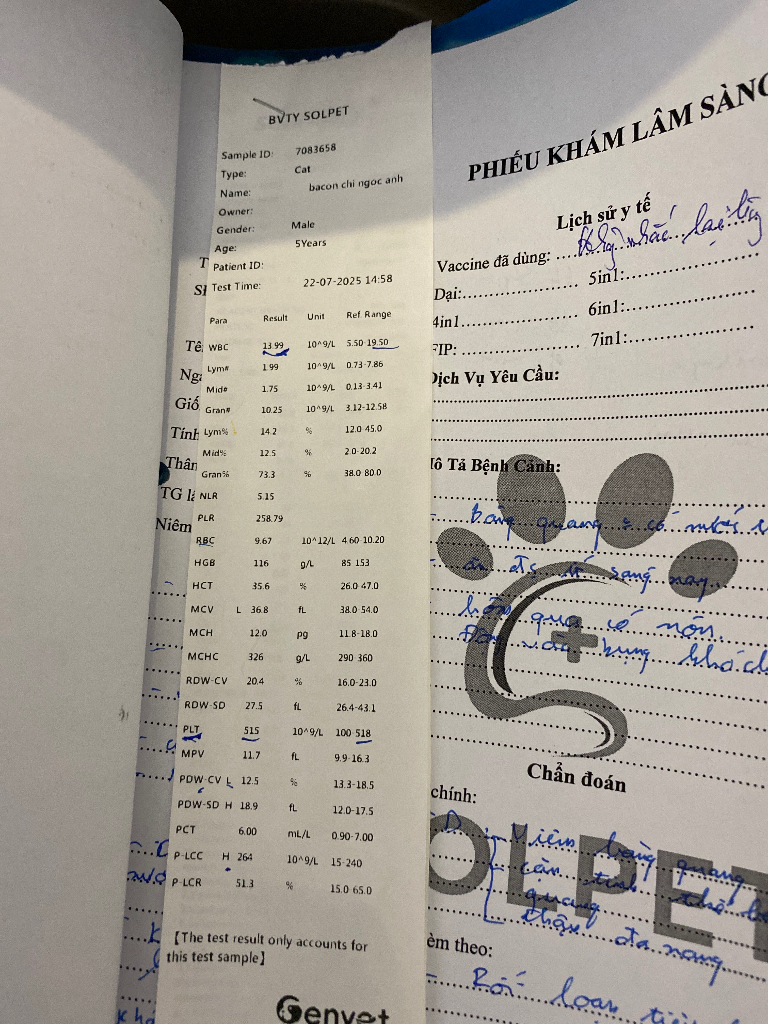 BVTY SOLPET
Sample ID: 7083658
Type: Cat
Name: bacon chi ngoc anh
Owner:
Gender: Male
Age: 5Years
Patient ID:
Test Time: 22-07-2025 14:58
Para Result Unit Ref. Range
WBC 13.99 10^9/L 5.50-19.50
Lym# 1.99 10^9/L 0.73-7.86
Mid# 1.75 10^9/L 0.13-3.41
Gran# 10.25 10^9/L 3.12-12.58
Lym% 14.2 % 12.0-45.0
Mid% 12.5 % 2.0-20.2
Gran% 73.3 % 38.0-80.0
NLR 5.15
PLR 258.79
RBC 9.67 10^12/L 4.60-10.20
HGB 116 g/L 85-153
HCT 35.6 % 26.0-47.0
MCV L 36.8 fL 38.0-54.0
MCH 12.0 pg 11.8-18.0
MCHC 326 g/L 290-360
RDW-CV 20.4 % 16.0-23.0
RDW-SD 27.5 fL 26.4-43.1
PLT 515 10^9/L 100-518
MPV 11.7 fL 9.9-16.3
PDW-CV L 12.5 % 13.3-18.5
PDW-SD H 18.9 fL 12.0-17.5
PCT 6.00 mL/L 0.90-7.00
P-LCC H 264 10^9/L 15-240
P-LCR 51.3 % 15.0-65.0
【The test result only accounts for
this test sample】
Genvet
Tính
Thân
Niêm
PHIẾU KHÁM LÂM SÀNG
Lịch sử y tế
Vaccine đã dùng: nhắc lại
Dại: 5in1:
4in1 6in1:
FIP: 7in1:
Dịch Vụ Yêu Cầu:
Mô Tả Bệnh Cảnh:
- Bàng quang có
- ăn sáng nay
hôm qua có nôn.
bụng khó
Chẩn đoán
chính:
Viêm bàng quang
cặn
quang
thận đa nang
èm theo:
- Rối loạn
OLPET